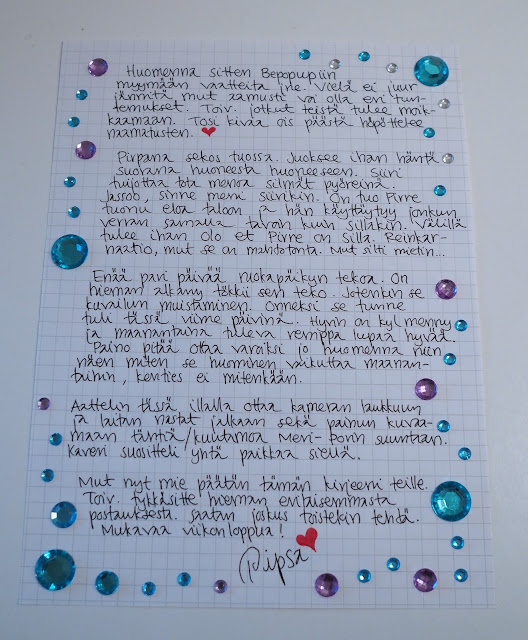 Huomenna sitten Bepopupiin
myymään vaatteita jne. Vielä ei juur
jännitä mut aamusta voi olla eri tun-
temukset. Toiv. jotkut teistä tulee moik-
kaamaan. Tosi kivaa ois päästä höpöttelee
naamatusten.
Pirpana sekos tuossa. Juoksee ihan häntä
suorana huoneesta huoneeseen. Siiri
tuijottaa tota menoa silmät pyöreinä.
Jassoo, sinne meni Siirikin. On tuo Pirre
tuonu eloa taloon ja hän käyttäytyy jonkun
verran samalla tavoin kuin Sillakin. Välillä
tulee ihan olo et Pirre on Silla. Reinkar-
naatio, mut se on mahdotonta. Mut silti mietin...
Enää pari päivää ruokapäikyn tekoa. On
hieman alkanu tökkii sen teko. Jotenkin se
kuvailun muistaminen. Onneksi se tunne
tuli tässä viime päivinä. Hyvin on kyl menny
ja maanantaina tuleva reinppa lupaa hyvää.
Paino pitää ottaa varoiksi jo huomenna niin
näen miten se huominen vaikuttaa maanan-
taihin, kenties ei mitenkään.
Aattelin tässä illalla ottaa kameran laukkuun
ja laitan nastat jalkaan sekä painun kuvaa-
maan tähtiä/kuutamoa Meri-Porin suuntaan.
Kaveri suositteli yhtä paikkaa sieltä.
Mut nyt mie päätän tämän kirjeeni teille.
Toiv. tykkäsitte hieman erilaisemmasta
postauksesta. Saatan joskus toistekin tehdä.
Mukavaa viikonloppua!
Pipsa